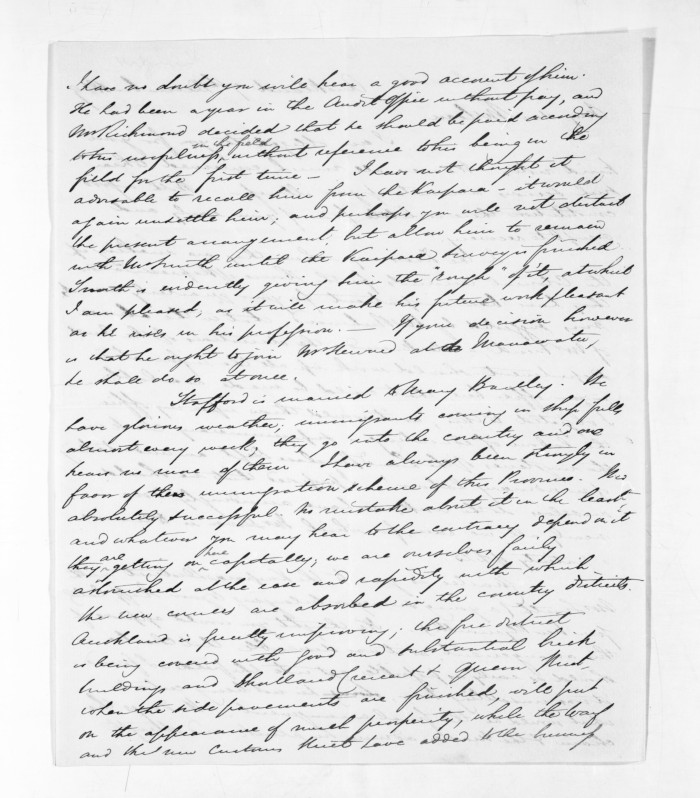 I have no doubt you will hear a good account of him.
He had been a year in the Audit Office without pay, and
Mr Richmond decided that he should be paid according
to his usefulness in the field, without reference to his being in the
field for the first time - I have not thought it
advisable to recall him from the Kaipara - it would
again unsettle him; and perhaps you will not disturb
the present arrangement, but allow him to remain
with Mr Smith until the Kaipara survey is finished
Smith is evidently giving him the "rough" of it, at which
I am pleased, as it will make his future work pleasant
as he rises in his profession. — If your decision however
is that he ought to join Mr Stewart at Manawatu,
he shall do so at once.
Stafford is married to Mary Bartley. We
have glorious weather; immigrants coming in ship fulls
almost every week; they go into the country and one
hears no more of them. I have always been strongly in
favor of the immigration scheme of this Province. It is
absolutely successful. No mistake about it in the least,
and whatever you may hear to the contrary depend on it
they are getting on here capitally; we are ourselves fairly
astonished at the ease and rapidity with which
the new comers are absorbed in the country districts.
Auckland is greatly improving; the fire district
is being covered with good and substantial brick
buildings and Shortland Crescent & Queen Street
when the side pavements are finished, will put
on the appearance of much prosperity, while the Wharf
and the new Customs Street have added to the